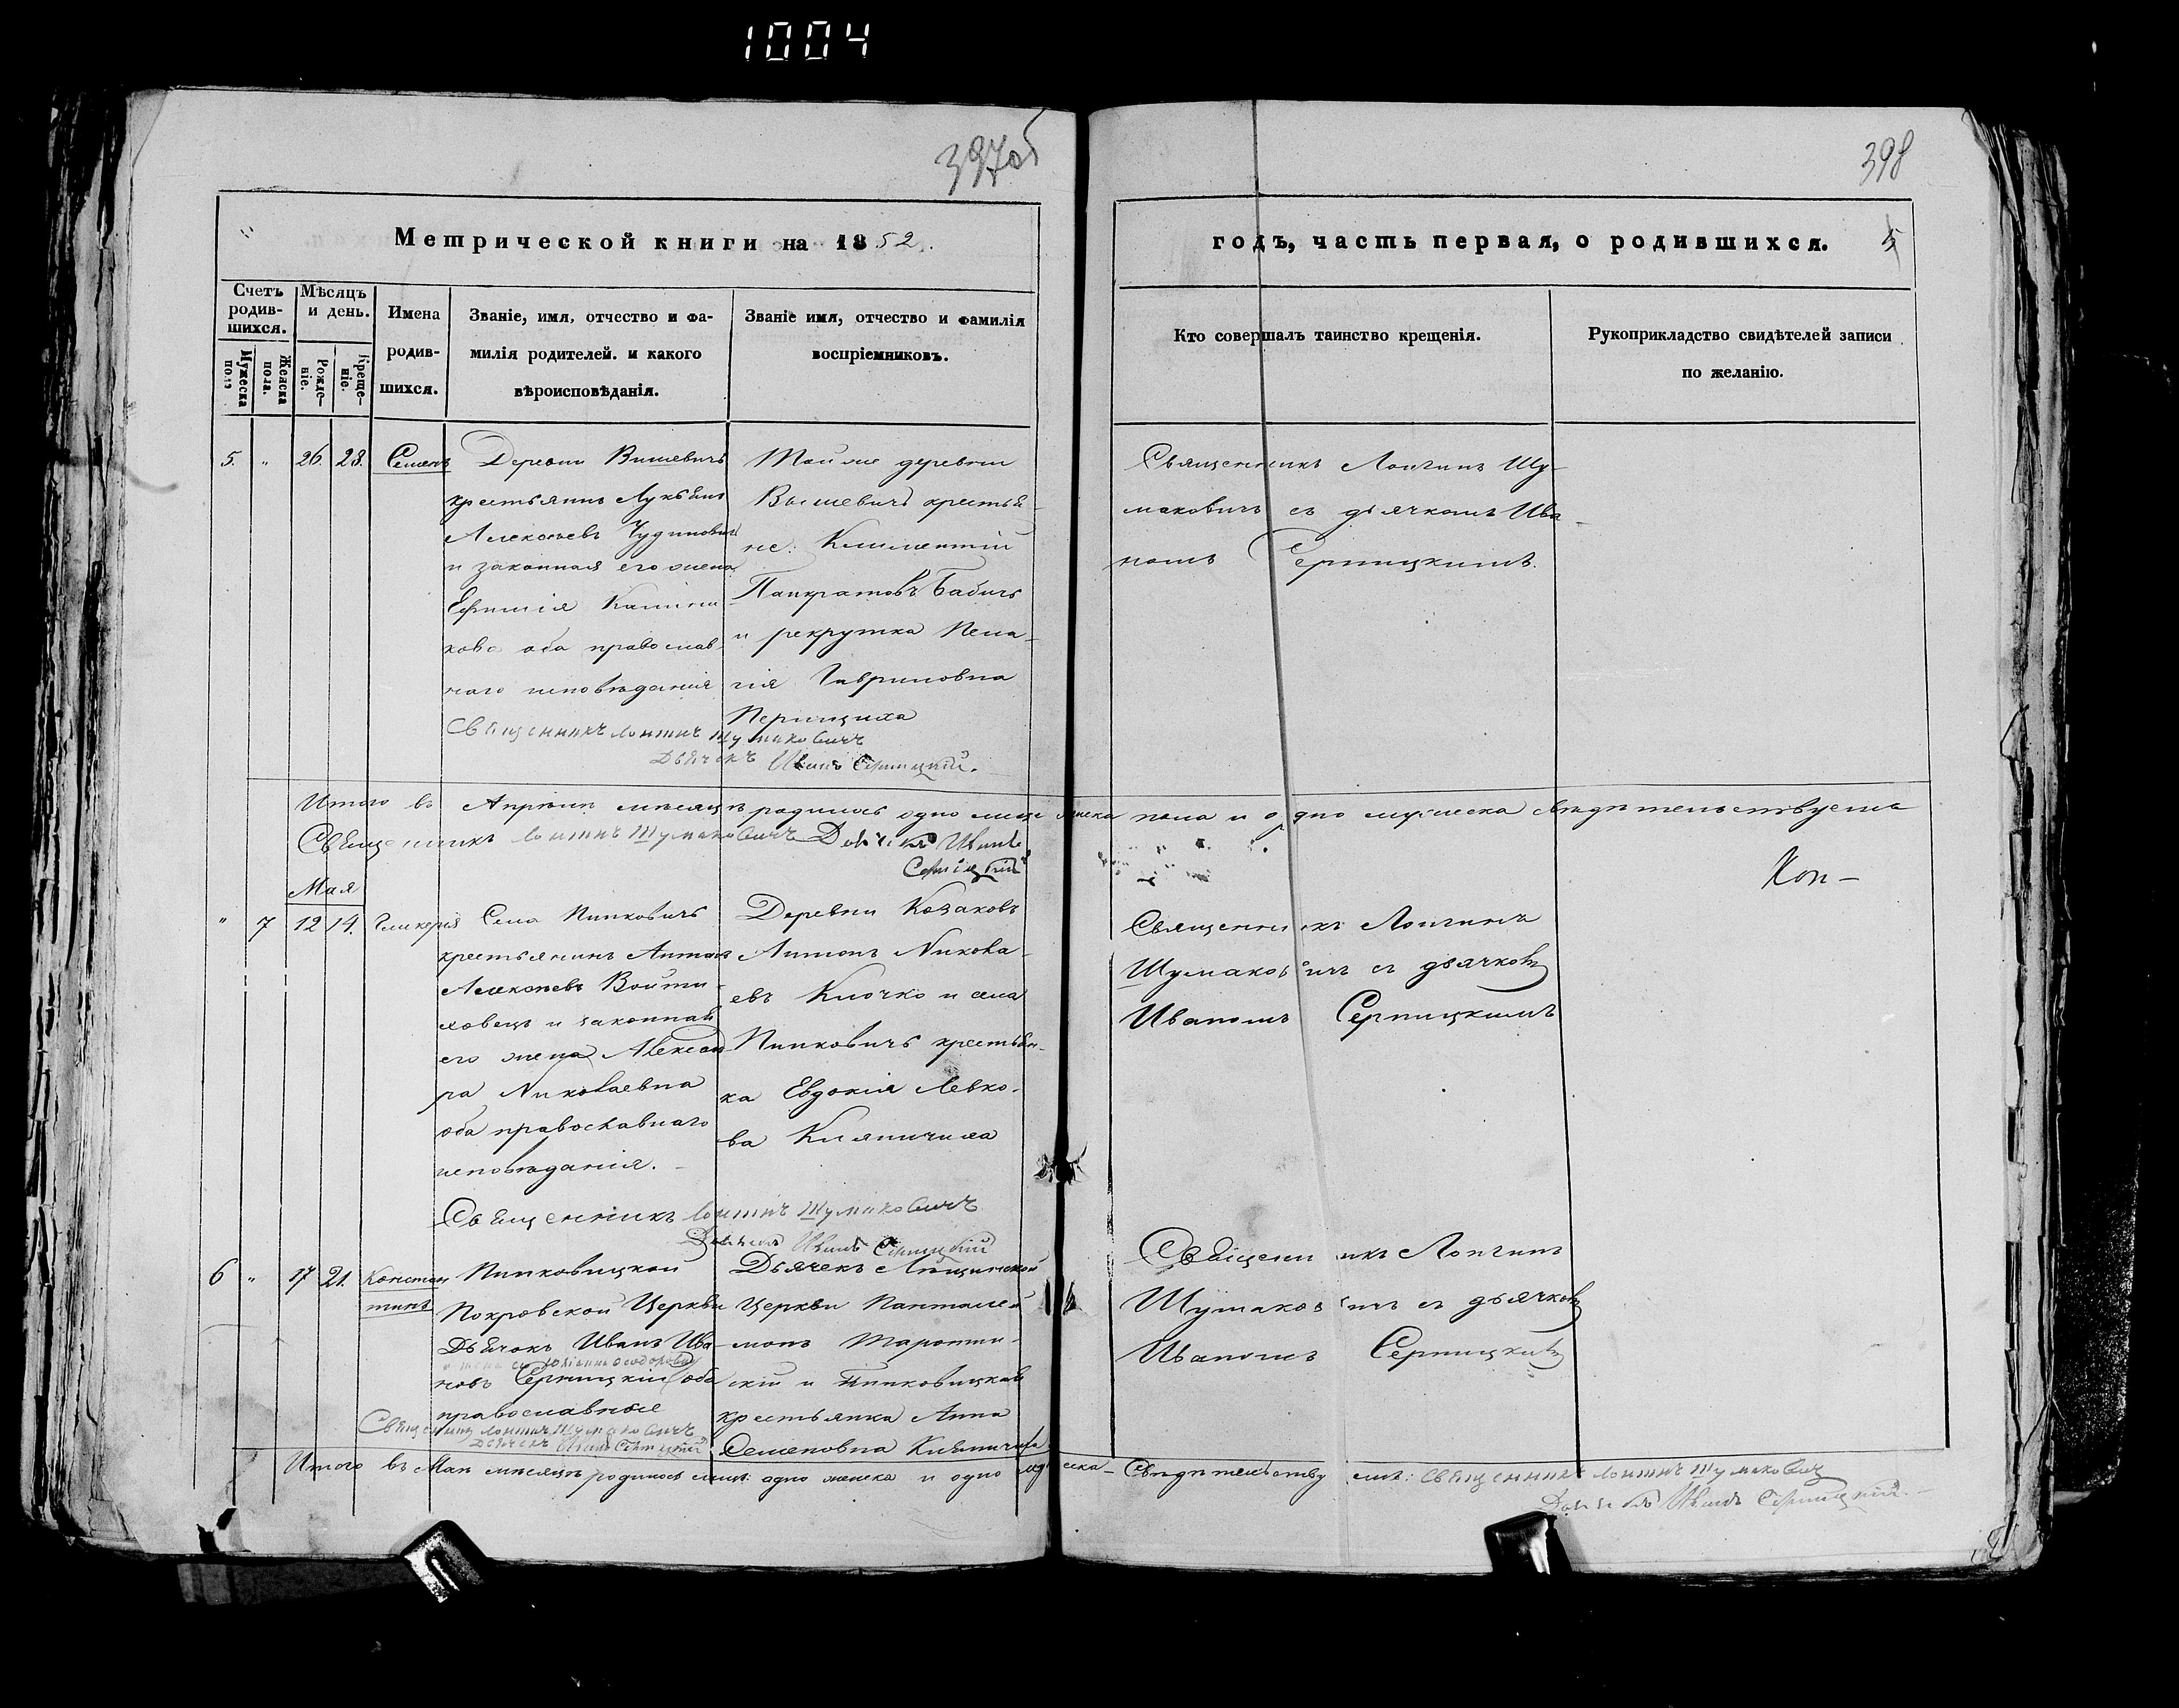 1004
397об
398
Метрической книги на 1852.
годъ, часть первая, о родившихся.
5
Счетъ родив-шихся.
Мужеска пола
Женска пола.
Мѣсяцъ и день.
Рожде-ніе.
Креще-ніе.
Имена родив-шихся.
Званіе, имя, отчество и фа-
милія родителей. и какого
вѣроисповѣданія.
Званіе имя, отчество и фамилія
воспріемниковъ.
Кто совершалъ таинство крещенія.
Рукоприкладство свидѣтелей записи
по желанію.
5. " 26. 28. Семенъ
Деревни Вишевичъ
крестьянинъ Лукьянъ
Алексѣевъ Чудиновичъ
и законная его жена
Евфимія
оба православ-
наго исповѣданія
Священникъ Лонгинъ Шумаковичъ
Дьячекъ Иванъ Серницкій.
Той же деревни
Вышевичъ крестья-
не: Климентій
Панкратовъ Бабичъ
и рекрутка Пела-
гія Гавриловна
Священникъ Лонгинъ Шу-
маковичъ съ дьячкомъ Ива-
номъ Серницкимъ.
Итого въ Апрѣлѣ мѣсяцѣ родилось одно женска пола и одно мужеска свѣдѣтельствуемъ
Священникъ Лонгинъ Шумаковичъ Дьячекъ Иванъ
Серницкій
Коп-
Мая
" 7 12 14. Гликерія
Села Пинковичъ
крестьянинъ Антонъ
Алексѣевъ Войти-
ховецъ и законная
его жена Александ-
ра Николаевна
оба православнаго
исповѣданія.
Священникъ Лонгинъ Шумаковичъ
Дьячекъ Иванъ Серницкій
Деревни Козаковъ
Антонъ Никола-
евъ Клочко и села
Пинковичъ крестьян-
ка Евдокія Левко-
ва
Священникъ Лонгинъ
Шумаковичъ съ дьячкомъ
Иваномъ Серницкимъ
6 " 17 21. Констан-
тинъ
Пинковицкой
Покровской Церкви
Дьячокъ Иванъ Ива-
новъ Серницкій оба
православные
Священникъ Лонгинъ Шумаковичъ
Дьячекъ Иванъ Серницкій
Дьячекъ
Церкви Панталей-
монъ
скій и Пинковицкая
крестьянка Анна
Семеновна
Священникъ Лонгинъ
Шумаковичъ съ дьячкомъ
Иваномъ Серницкимъ
Итого въ Маѣ мѣсяцѣ родилось одно женска и одно мужеска свѣдѣтельствуемъ: Священникъ Лонгинъ Шумаковичъ
Дьячекъ Иванъ Серницкій